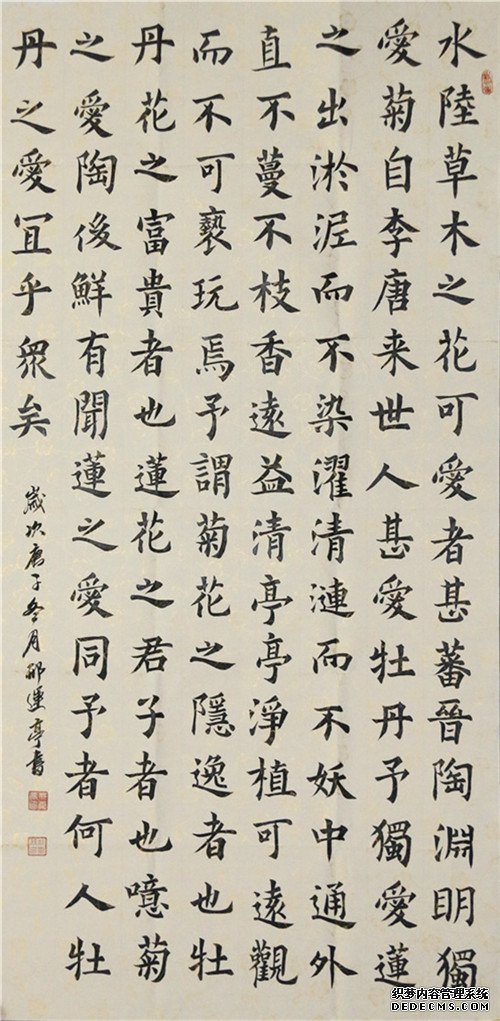 水陸草木之花可愛者甚蕃晉陶淵明獨
愛菊自李唐来世人甚愛牡丹予獨愛蓮
之出淤泥而不染濯清漣而不妖中通外
直不蔓不枝香遠益清亭亭淨植可遠觀
而不可褻玩焉予謂菊花之隱逸者也牡
丹花之富貴者也蓮花之君子者也噫菊
之愛陶後鮮有聞蓮之愛同予者何人牡
丹之愛冝乎眾矣
歲次庚子冬月亭書
织梦内容管理系统
DEDECMS.COM